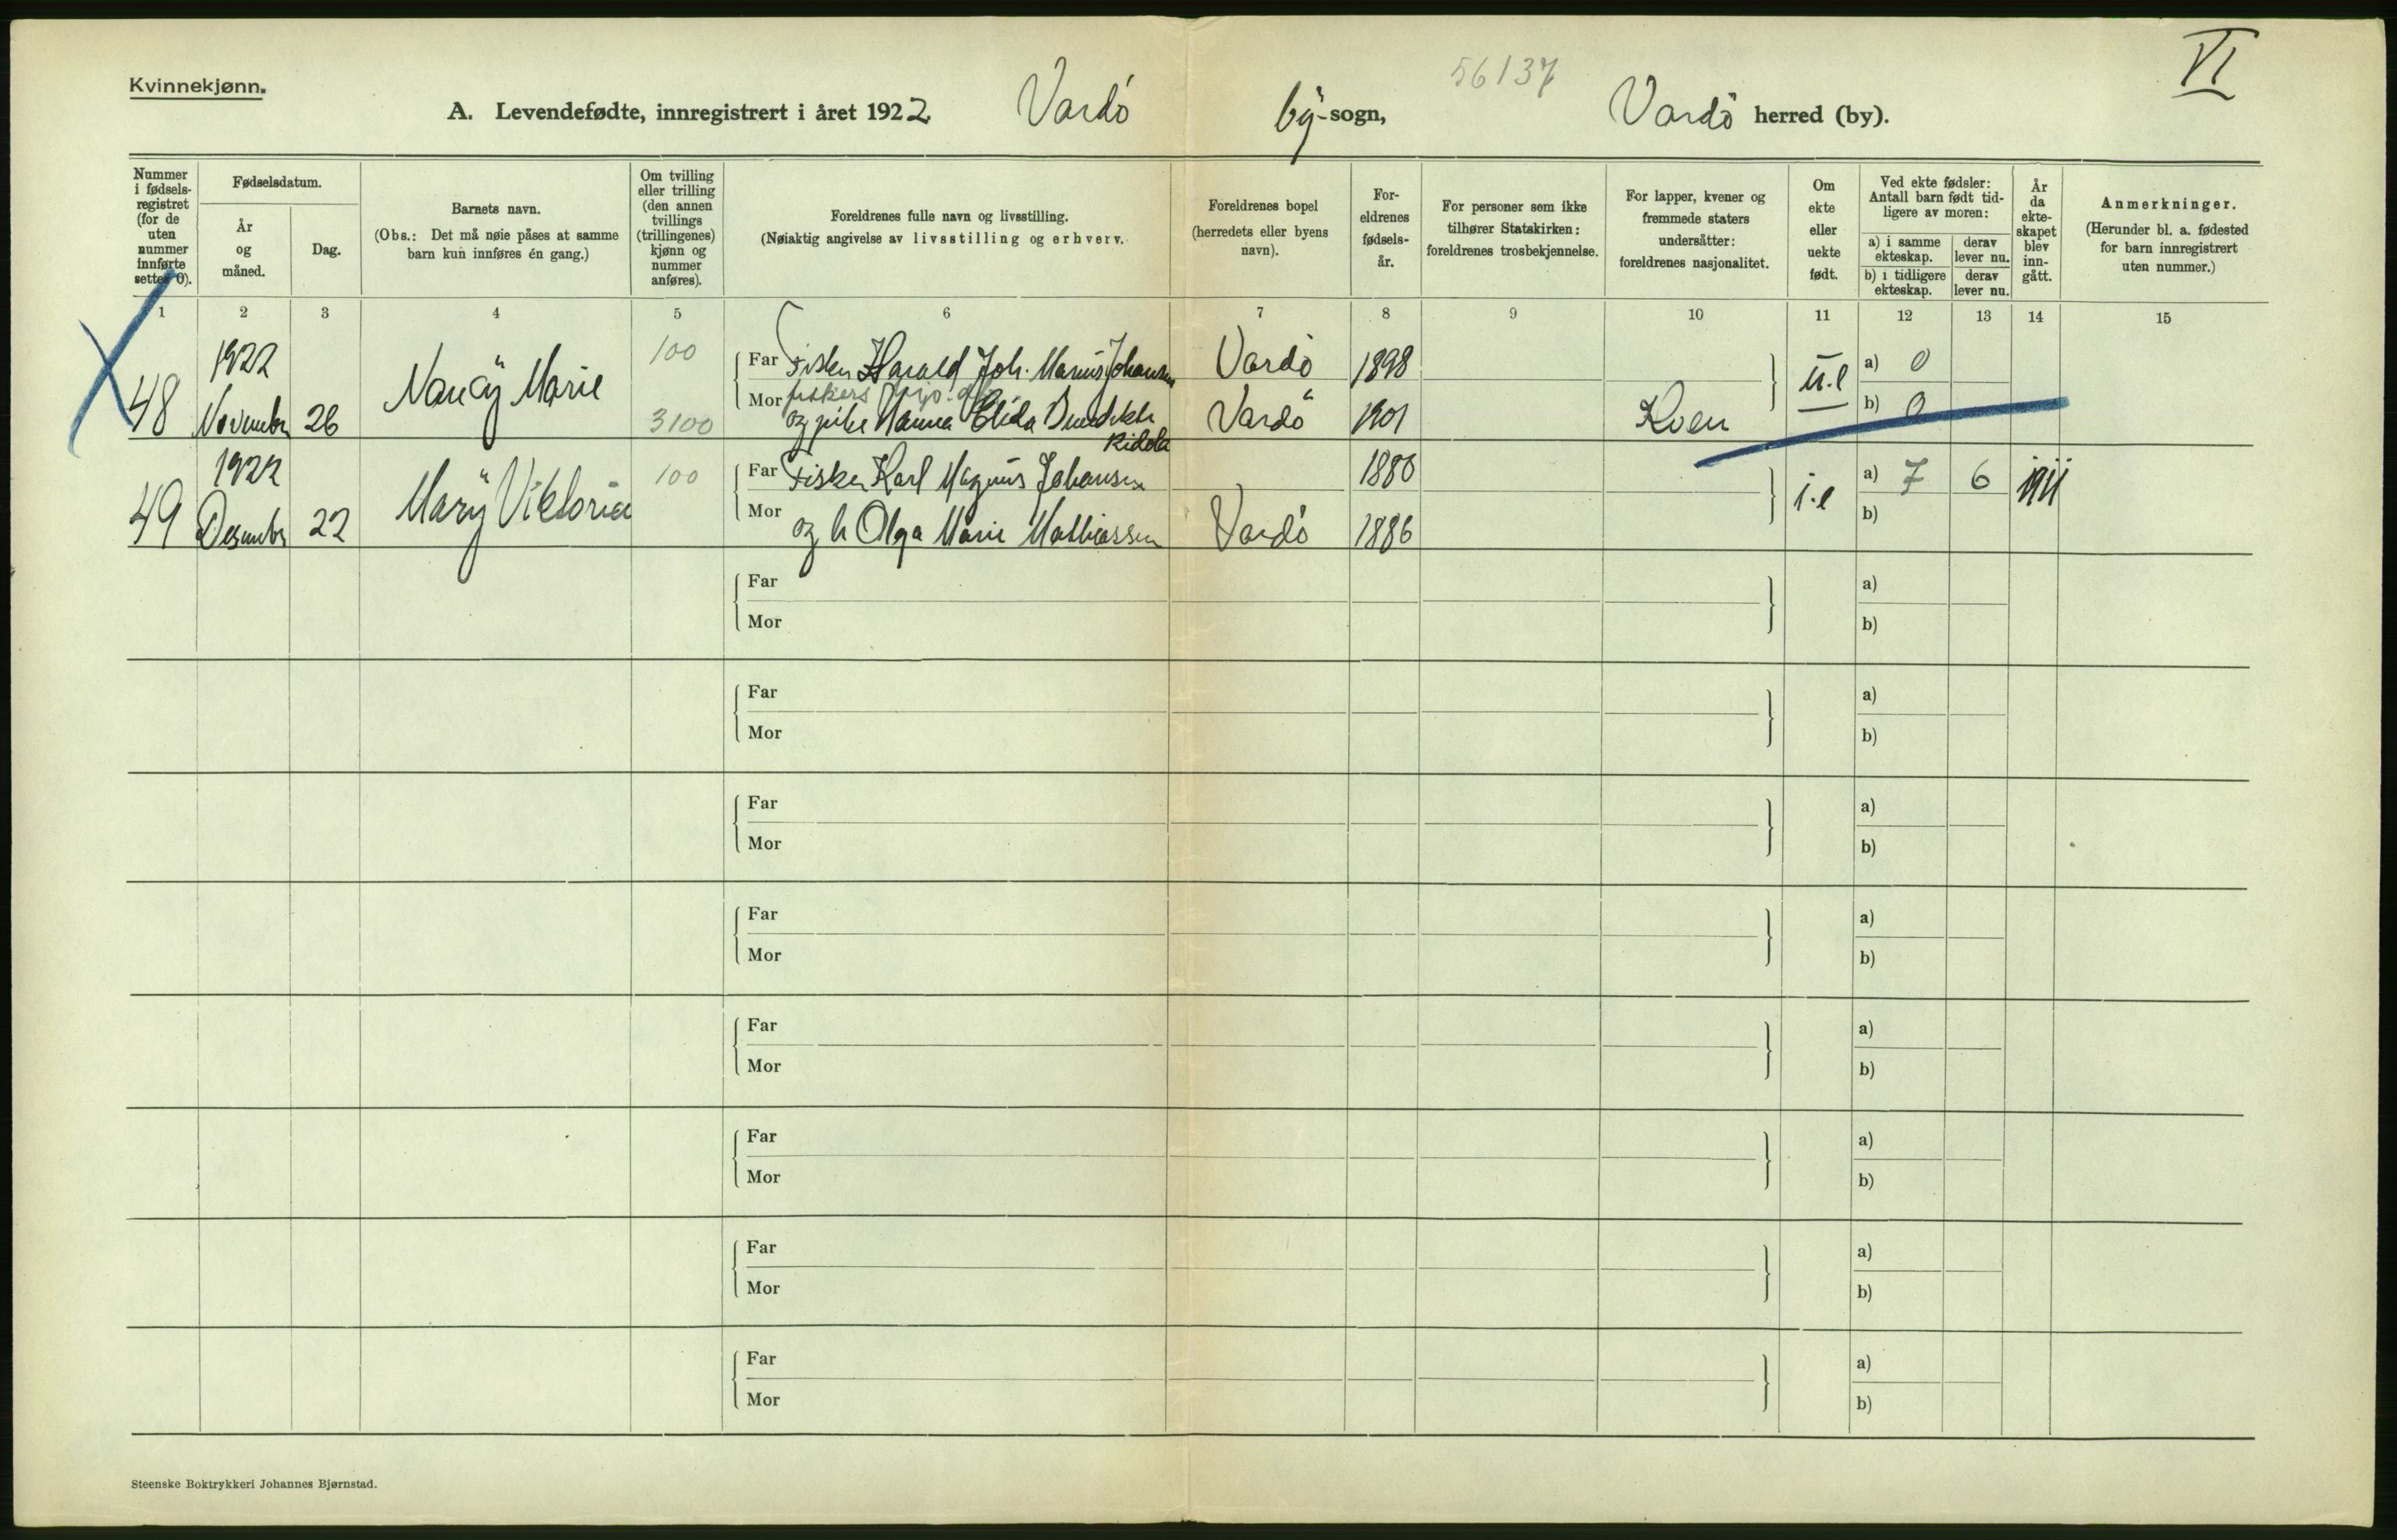 Kvinnekjønn.
56137
VI
A. Levendefødte, innregistrert i året 1922. Vardö by-sogn, Vardö herred (by).
Nummer i fødsels-registret (for de uten nummer innførte settes 0).
Fødselsdatum.
År og måned.
Dag.
Barnets navn.
(Obs.: Det må nøie påses at samme barn kun innføres én gang.)
Om tvilling eller trilling (den annen tvillings (trillingenes) kjønn og nummer anføres).
Foreldrenes fulle navn og livsstilling.
(Nøiaktig angivelse av livsstilling og erhverv.
Foreldrenes bopel (herredets eller byens navn).
For-eldrenes fødsels-år.
For personer som ikke tilhører Statskirken: foreldrenes trosbekjennelse.
For lapper, kvener og fremmede staters undersåtter: foreldrenes nasjonalitet.
Om ekte eller uekte født.
Ved ekte fødsler: Antall barn født tid-ligere av moren:
a) i samme ekteskap.
derav lever nu.
b) i tidligere ekteskap.
derav lever nu.
År da ekte-skapet blev inn-gått.
Anmerkninger.
(Herunder bl. a. fødested for barn innregistrert uten nummer.)
1 2 3 4 5 6 7 8 9 10 11 12 13 14 15
48 1922 November 26 Nancy Marie 100 3100
Far Fisker Harald Joh. Marius Johansen Vardö 1898 u.e a) 0
Mor fiskers
og pike Hanna Elida Vardö 1901 Kven b) 0
49 1922 Desember 22 Mary Viktoria 100
Far Fisker Karl Magnus Johansen 1880 i.e a) 7 6 1911
Mor og h Olga Marie Mathiassen Vardö 1886 b)
Far a)
Mor b)
Far a)
Mor b)
Far a)
Mor b)
Far a)
Mor b)
Far a)
Mor b)
Far a)
Mor b)
Far a)
Mor b)
Far a)
Mor b)
Steenske Boktrykkeri Johannes Bjørnstad.